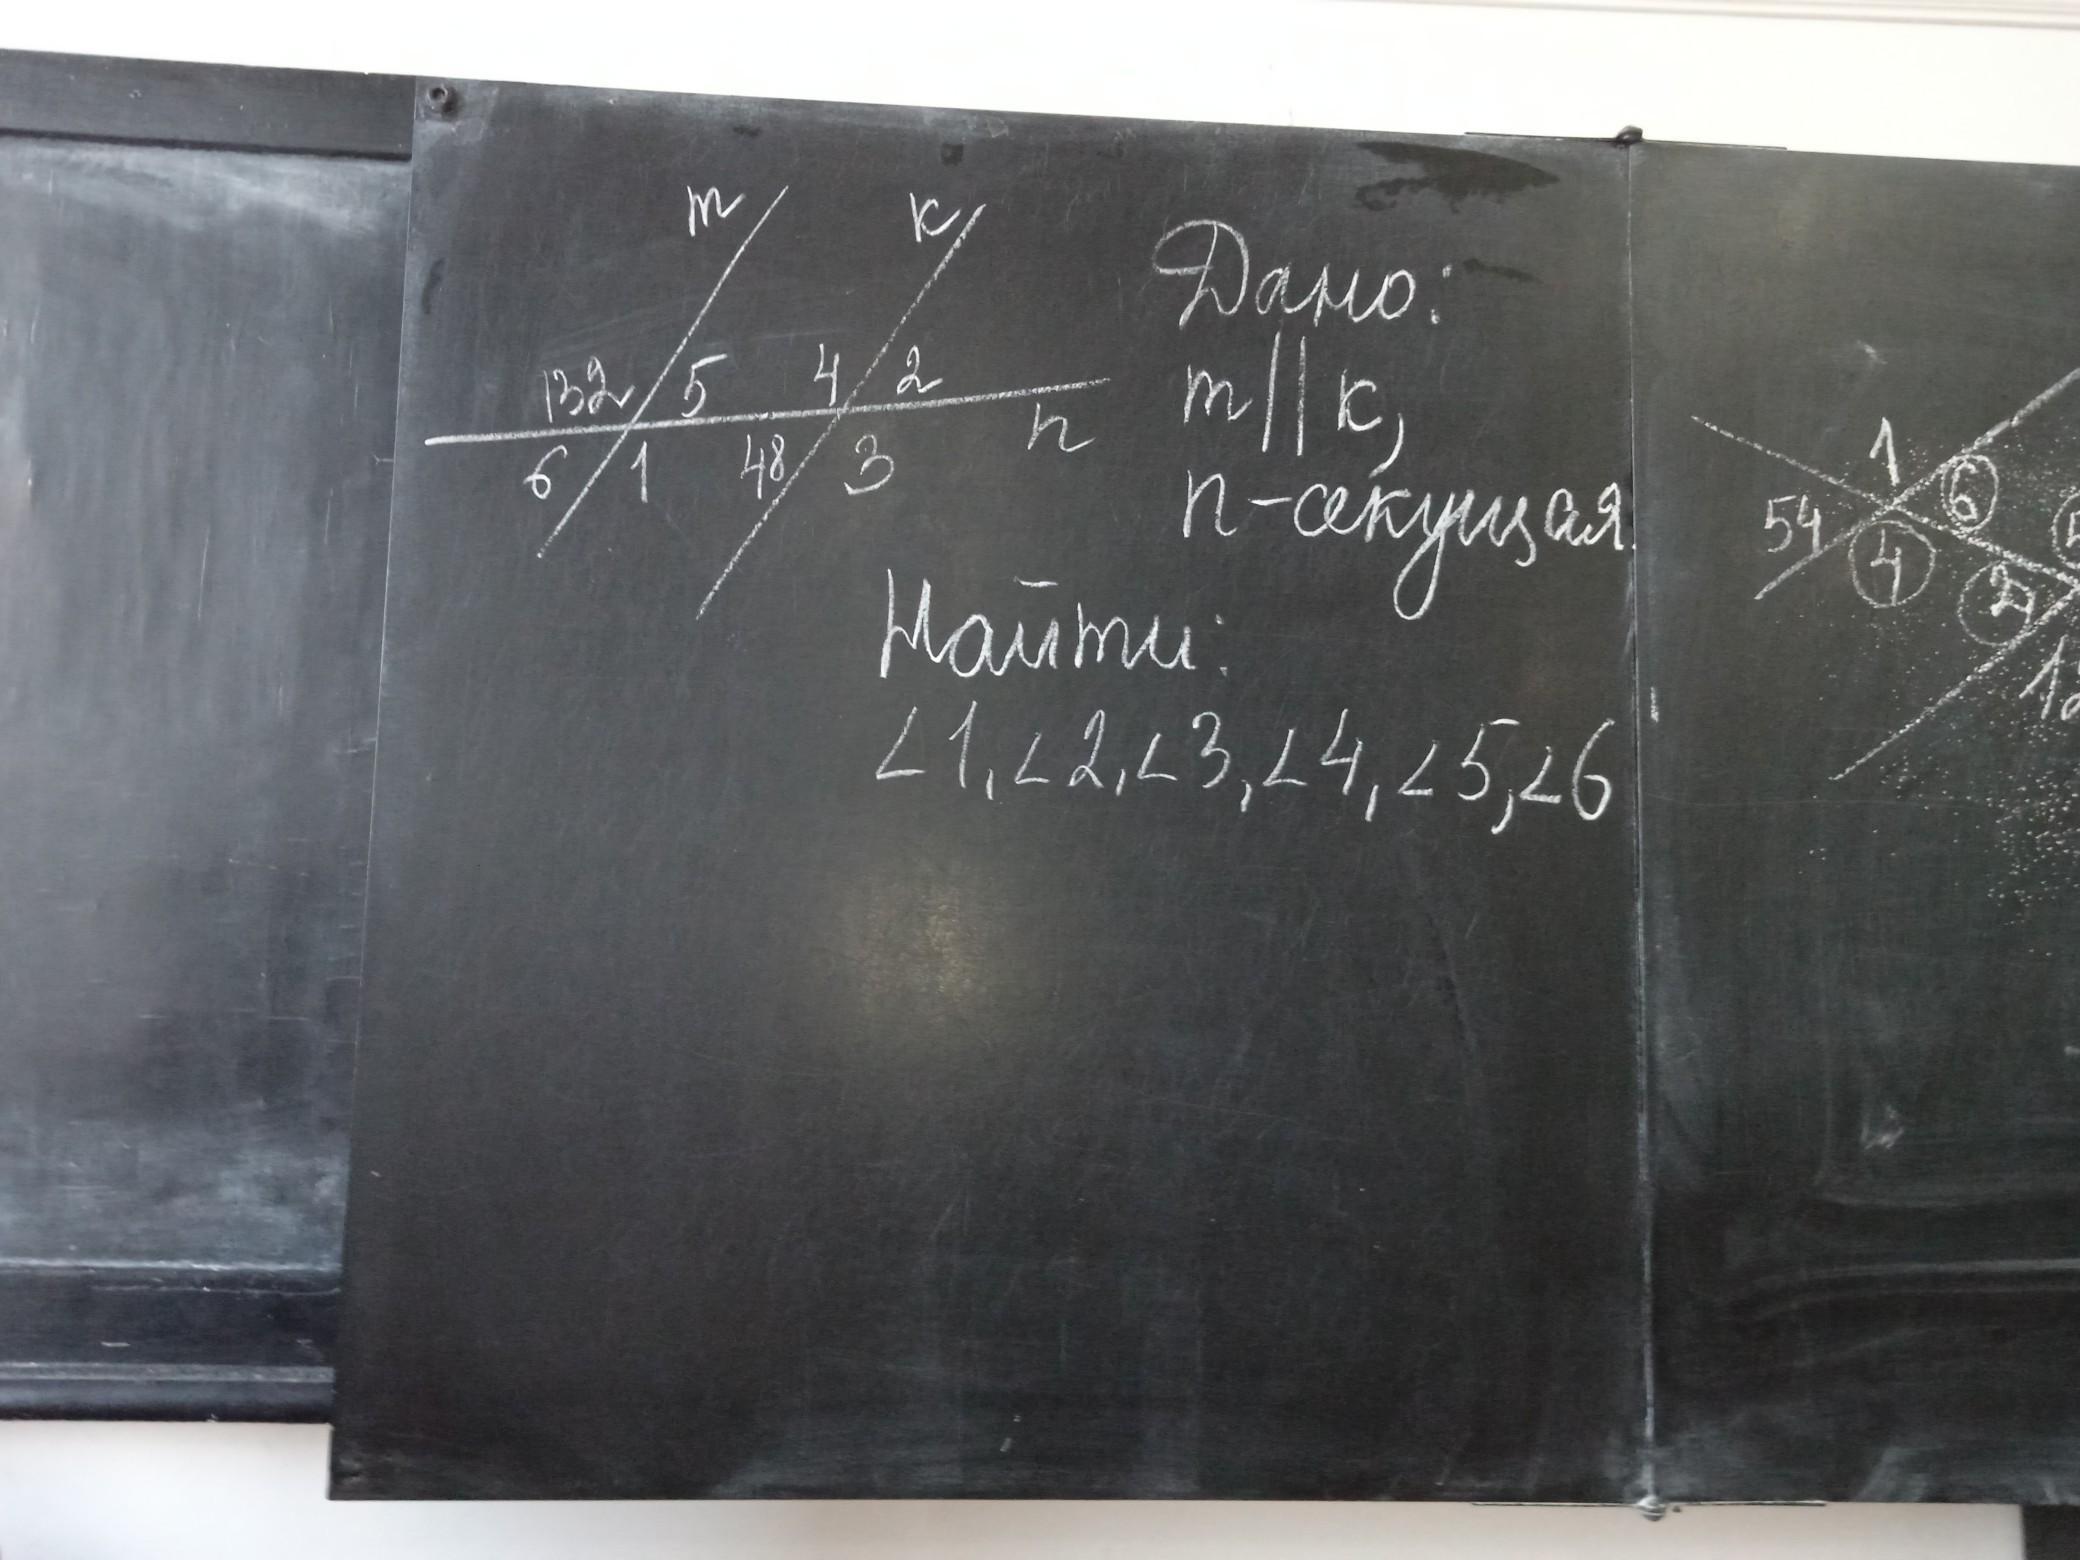 m к
132 5 4 2
6 1 48 3 n
Дано:
m || к,
n - секущая.
Найти:
∠1, ∠2, ∠3, ∠4, ∠5, ∠6
1
54 6
4 2